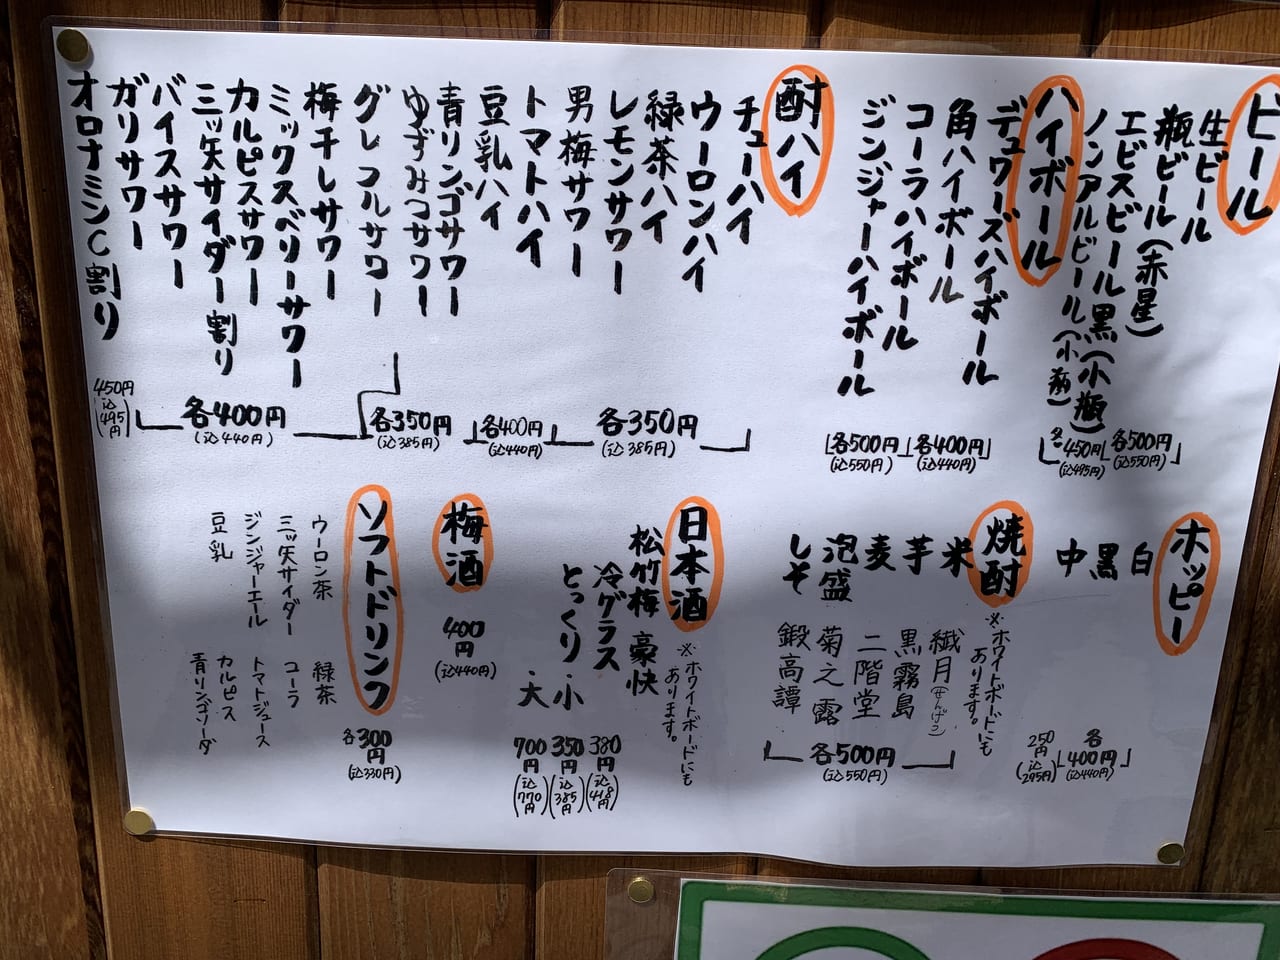 ビール
生ビール
瓶ビール(赤星)
エビスビール黒(小瓶)
ノンアルビール(小瓶)
各500円
(込550円)
各450円
(込495円)
ハイボール
デュワーズハイボール
角ハイボール
コーラハイボール
ジンジャーハイボール
各400円
(込440円)
各500円
(込550円)
酎ハイ
チューハイ
ウーロンハイ
緑茶ハイ
レモンサワー
男梅サワー
トマトハイ
豆乳ハイ
青リンゴサワー
ゆずみつサワー
グレフルサワー
梅干しサワー
ミックスベリーサワー
カルピスサワー
三ッ矢サイダー割り
バイスサワー
ガリサワー
オロナミンC割り
各350円
(込385円)
各400円
(込440円)
各350円
(込385円)
各400円
(込440円)
450円
(込495円)
ホッピー
白
黒
中
各400円
(込440円)
250円
(込295円)
焼酎
※ホワイトボードにもあります。
米 繊月(せんげつ)
芋 黒霧島
麦 二階堂
泡盛 菊之露
しそ 鍛高譚
各500円
(込550円)
日本酒
※ホワイトボードにもあります。
松竹梅 豪快
冷グラス
とっくり・小
・大
380円
(込418円)
350円
(込385円)
700円
(込770円)
梅酒
400円
(込440円)
ソフトドリンク
ウーロン茶 緑茶
三ッ矢サイダー コーラ
ジンジャーエール トマトジュース
豆乳 カルピス
青リンゴソーダ
各300円
(込330円)